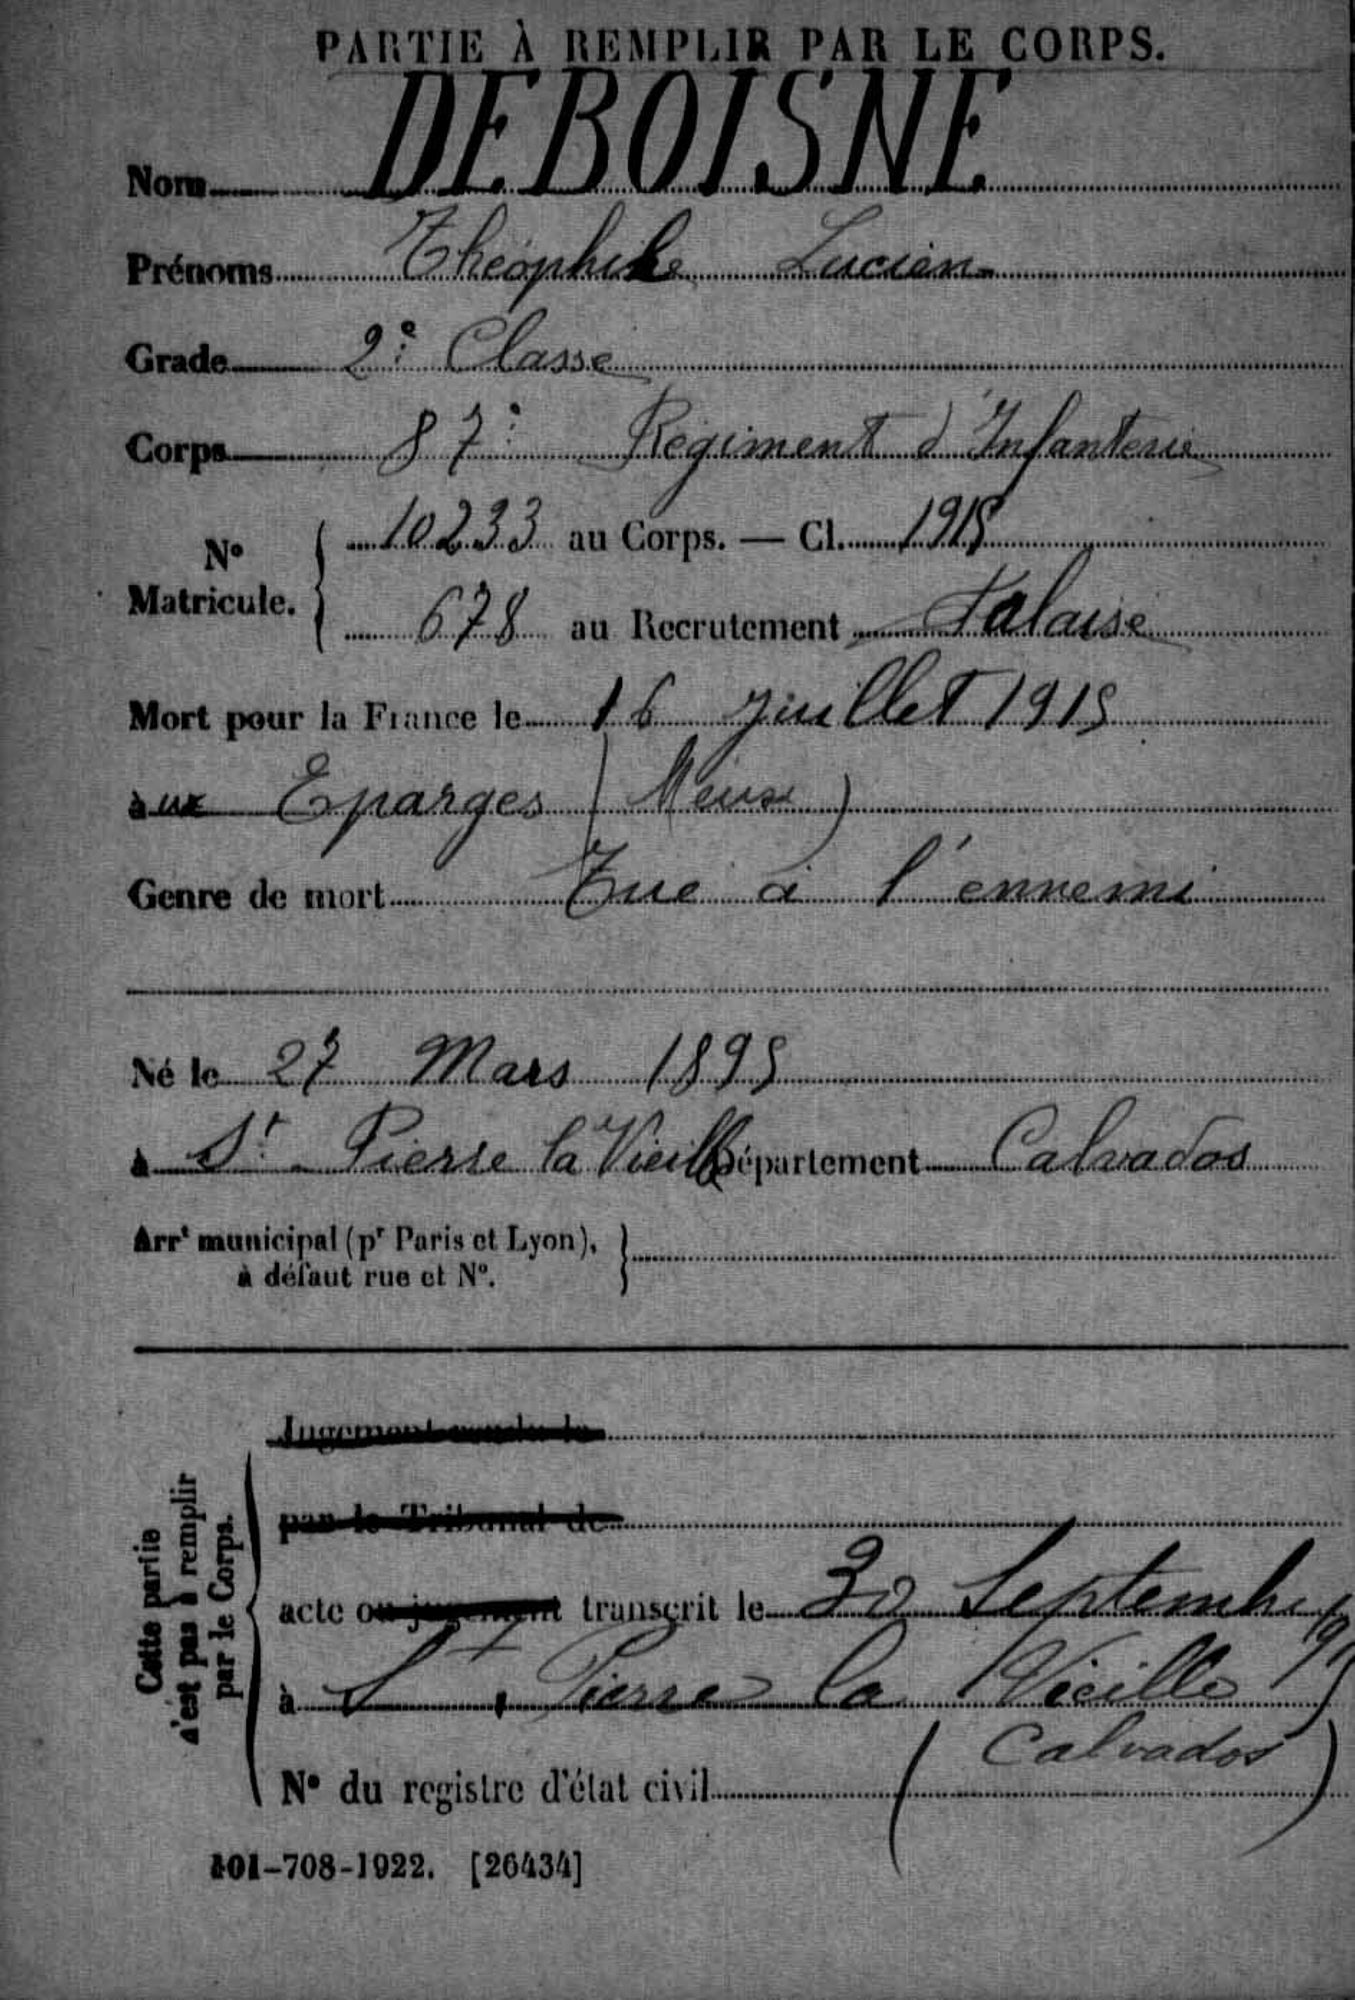 PARTIE À REMPLIR PAR LE CORPS.
Nom DEBOISNE
Prénoms Théophile Lucien
Grade 2e Classe
Corps 87e Régiment d'Infanterie
N° Matricule. { 10233 au Corps. — Cl. 1915
678 au Recrutement Falaise
Mort pour la France le 16 Juillet 1915
aux Eparges (Meuse)
Genre de mort Tué à l'ennemi
Né le 27 Mars 1895
à St. Pierre la Vieille Département Calvados
Arrt municipal (pr Paris et Lyon),
à défaut rue et N°.
Cette partie
n'est pas à remplir
par le Corps.
Jugement rendu le
par le Tribunal de
acte ou jugement transcrit le 30 Septembre
à St. Pierre la Vieille
(Calvados)
N° du registre d'état civil
101-708-1922. [26434]